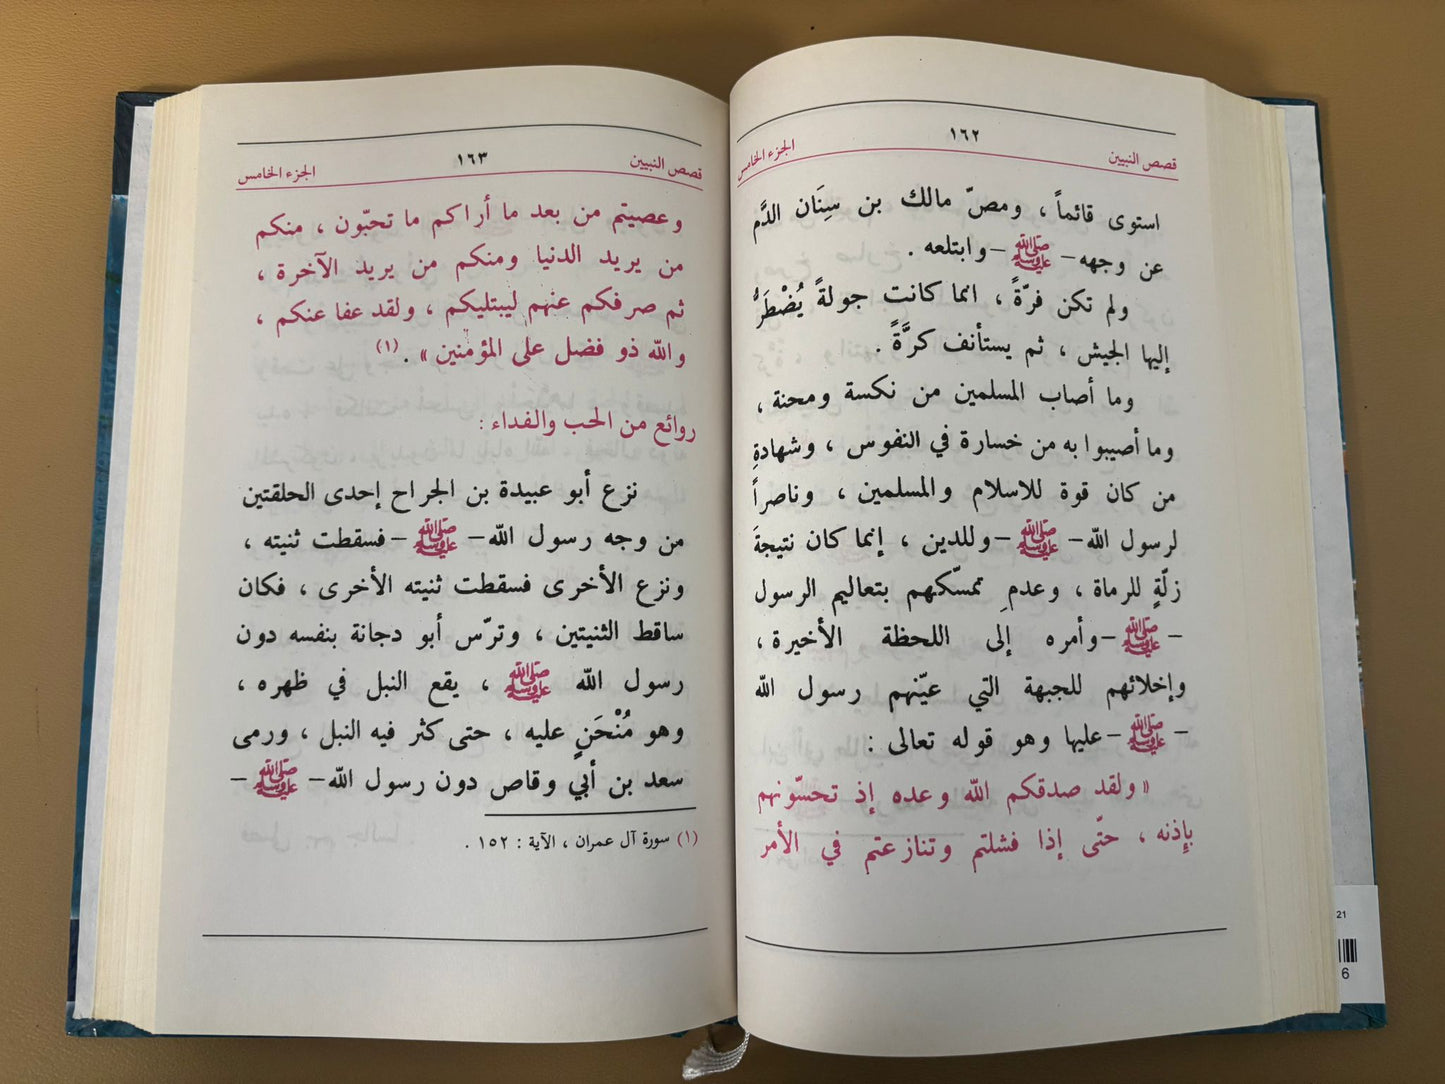 قصص النبيين ١٦٢ الجزء الخامس
استوى قائماً ، ومصّ مالك بن سِنَان الدَّم
عن وجهه - ﷺ - وابتلعه .
ولم تكن فرّةً ، انما كانت جولةً يُضْطَرُّ
إليها الجيش ، ثم يستأنف كرَّةً .
وما أصاب المسلمين من نكسة ومحنة ،
وما أصيبوا به من خسارة في النفوس ، وشهادةِ
من كان قوة للاسلام والمسلمين ، وناصراً
لرسول الله - ﷺ - وللدين ، إنما كان نتيجةَ
زلّةٍ للرماة ، وعدمِ تمسّكهم بتعاليم الرسول
- ﷺ - وأمره إلى اللحظة الأخيرة ،
وإخلائهم للجبهة التي عيّنهم رسول الله
- ﷺ - عليها وهو قوله تعالى :
« ولقد صدقكم الله وعده إذ تحسّونهم
بإِذنه ، حتّى إذا فشلتم وتنازعتم في الأمر
قصص النبيين ١٦٣ الجزء الخامس
وعصيتم من بعد ما أراكم ما تحبّون ، منكم
من يريد الدنيا ومنكم من يريد الآخرة ،
ثم صرفكم عنهم ليبتليكم ، ولقد عفا عنكم ،
والله ذو فضل على المؤمنين » . (١)
روائع من الحب والفداء :
نزع أبو عبيدة بن الجراح إحدى الحلقتين
من وجه رسول الله - ﷺ - فسقطت ثنيته ،
ونزع الأخرى فسقطت ثنيته الأخرى ، فكان
ساقط الثنيتين ، وترّس أبو دجانة بنفسه دون
رسول الله ﷺ ، يقع النبل في ظهره ،
وهو مُنْحَنٍ عليه ، حتى كثر فيه النبل ، ورمى
سعد بن أبي وقاص دون رسول الله - ﷺ -
(١) سورة آل عمران ، الآية : ١٥٢ .
21
6